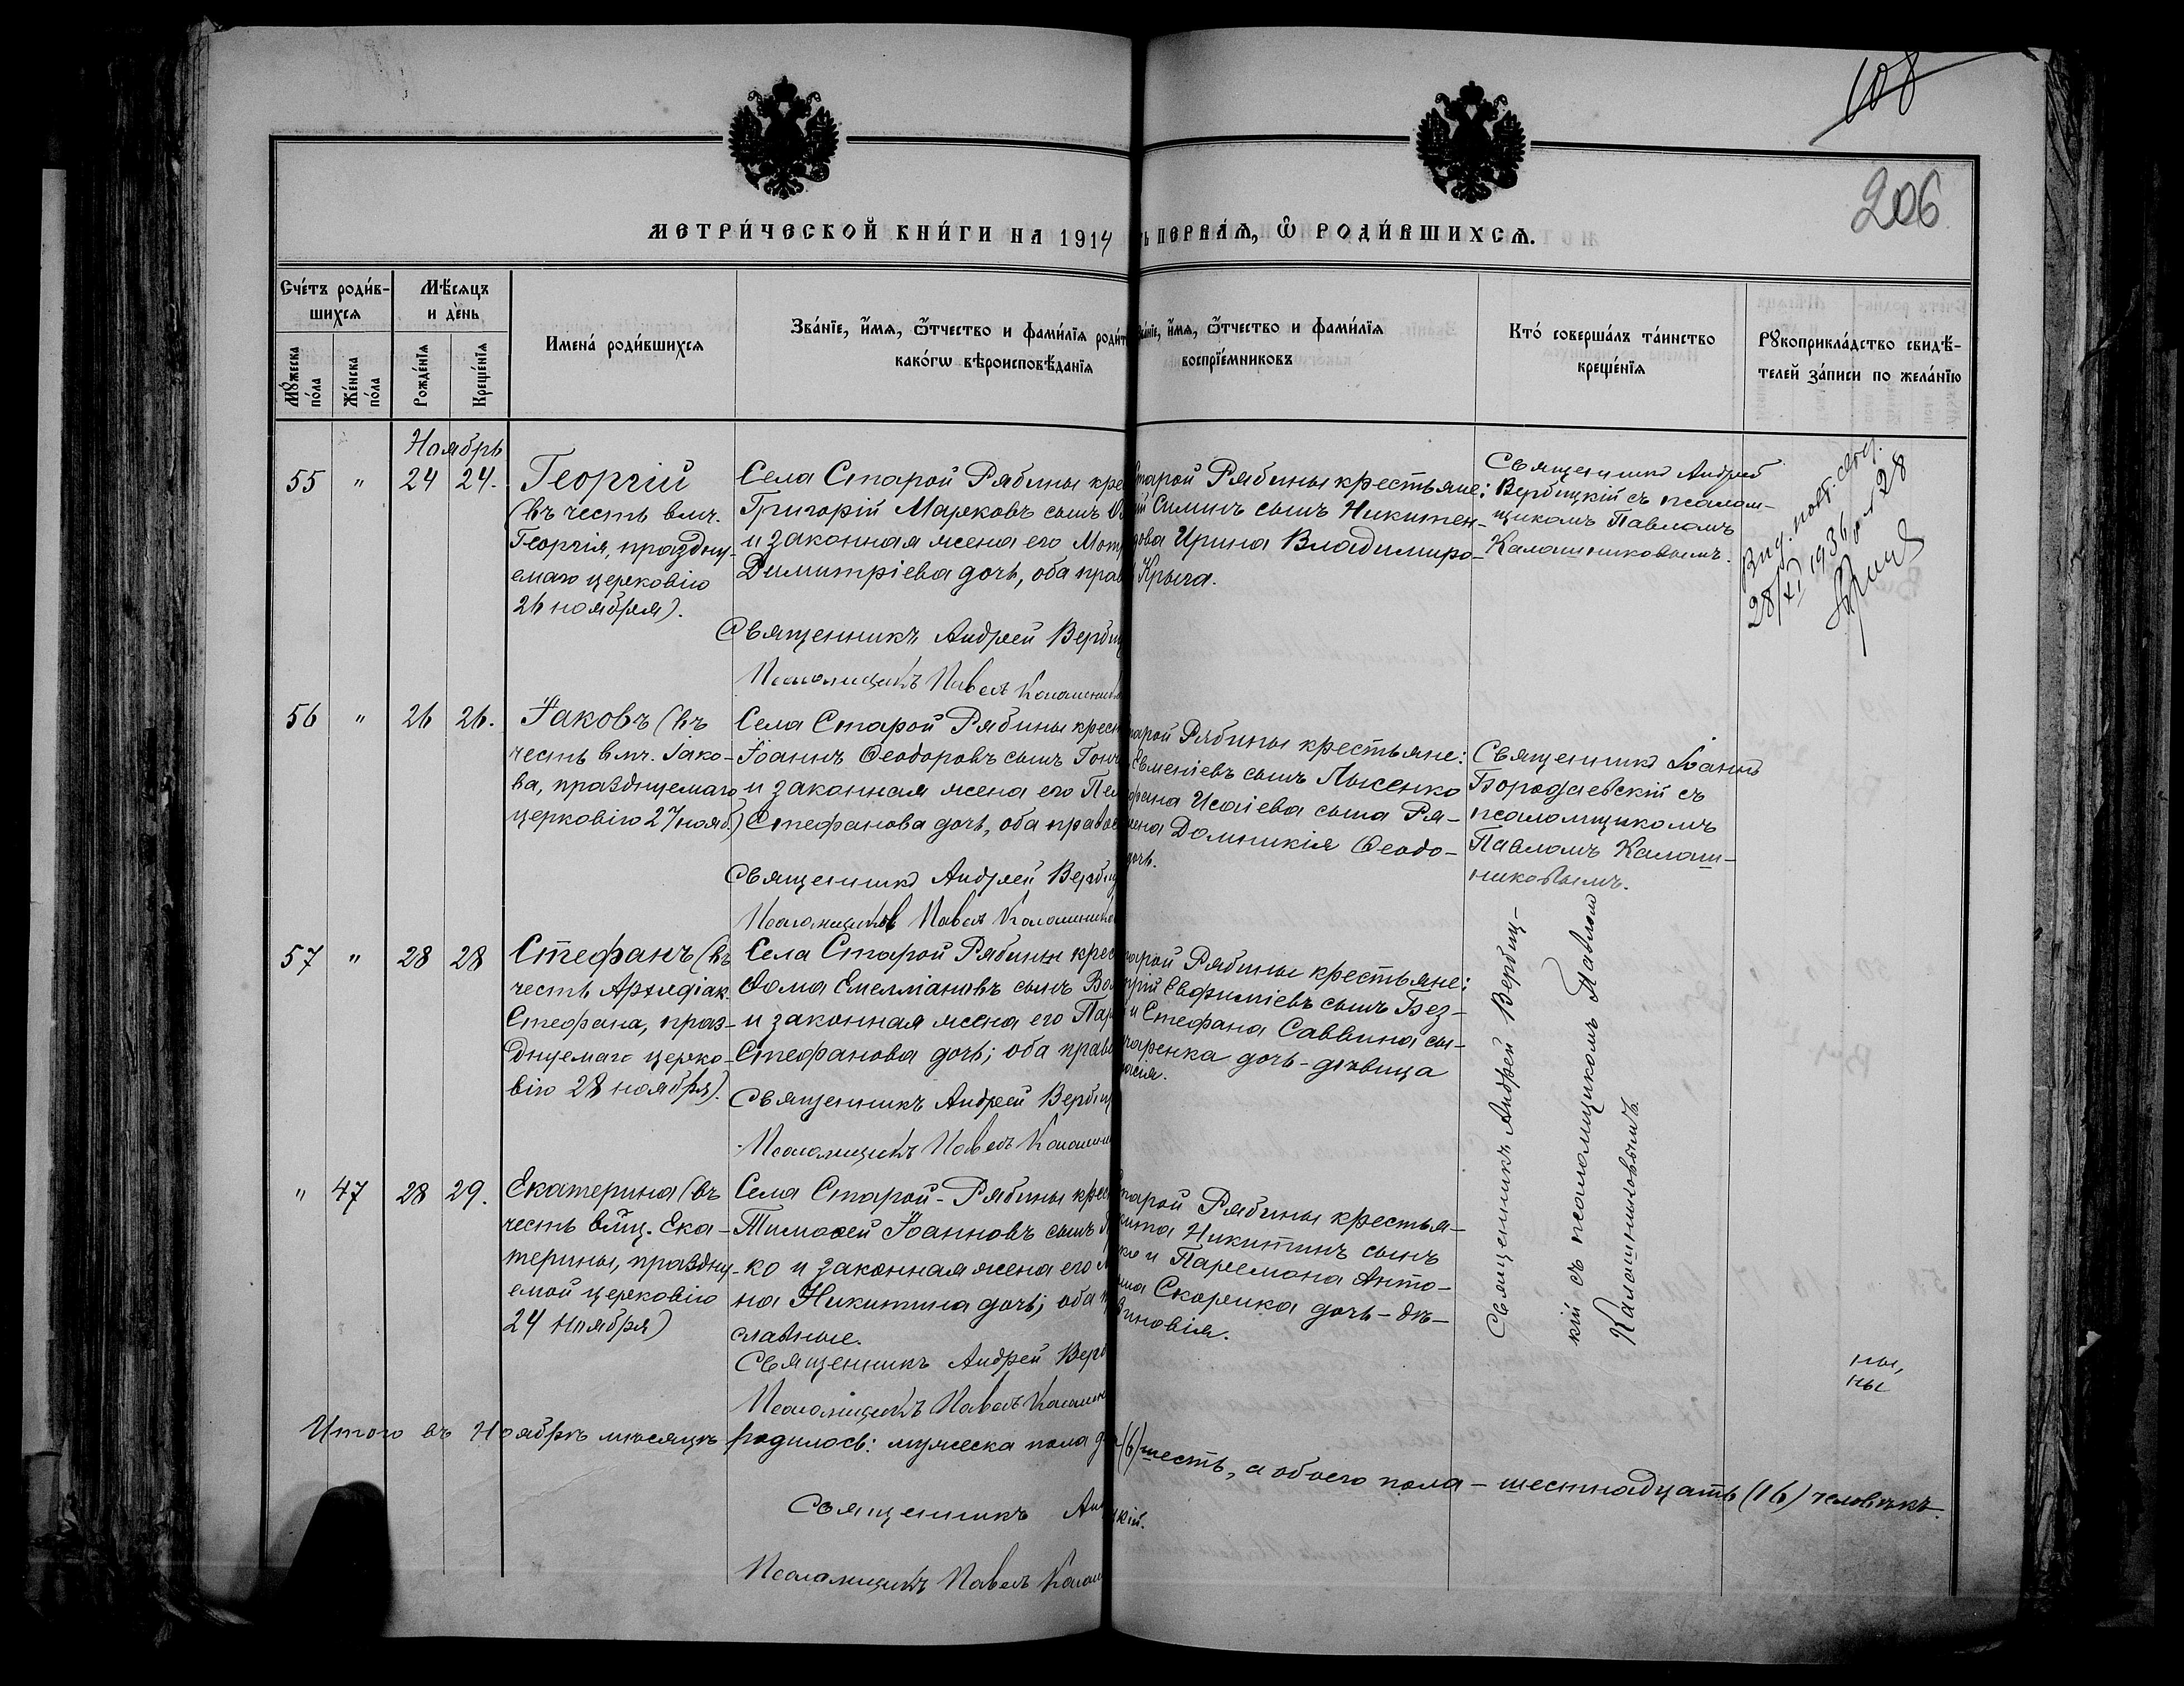 108
206
МЕТРИ́ЧЕСКОЙ КНИ́ГИ НА 1914
ПЕРВАѦ, Ѡ҆ РОДИ́ВШИХСѦ.
Сче́тъ роди́в-
шихсѧ
Мѣ́сѧцъ
и де́нь
Мꙋ́жеска
по́ла
Же́нска
по́ла
Рожде́нїѧ
Креще́нїѧ
Имена́ роди́вшихсѧ
Зва́нїе, и҆́мѧ, ѻ҆́тчество и фами́лїѧ роди́т
како́гѡ вѣроисповѣ́данїѧ
и҆́мѧ, ѻ҆́тчество и фами́лїѧ
воспрїе́мниковъ
Кто́ соверша́лъ та́инство
креще́нїѧ
Рꙋкоприкла́дство свидѣ́-
телей за́писи по жела́нїю
Ноябрь
55 " 24 24.
Георгій
(въ честь влмч.
Георгія, праздну-
емаго церковію
26 ноября).
Села Старой Рябины кре
Григорій Марковъ сынъ
и законная жена его Мот
Димитріева дочь, оба прав
Священникъ Андрей Верби
Псаломщикъ Павелъ Калашник
тарой Рябины крестьяне:
Симинъ сынъ Никитен-
дова Ирина Владимиро-
Крыга.
Священникъ Андрей
Вербицкій съ псалом-
щикомъ Павломъ
Калашниковымъ.
28/XI 1936
56 " 26 26.
Іаковъ (въ
честь влмч. Іако-
ва, празднуемаго
церковію 27 нояб.)
Села Старой Рябины крест
Іоаннъ Ѳеодоровъ сынъ Гон
и законная жена его Пел
Стефанова дочь, оба правос
Священникъ Андрей Вербиц
Псаломщикъ Павелъ Калашнико
тарой Рябины крестьяне:
Евменіевъ сынъ Лысенко
фана Исаіева сына Ря-
жена Домникія Ѳеодо-
дочь.
Священникъ Іоаннъ
Бородаевскій съ
псаломщикомъ
Павломъ Калаш-
никовымъ.
57 " 28 28
Стефанъ (въ
честь Архидіак.
Стефана, праз-
днуемаго церко-
вію 28 ноября).
Села Старой Рябины крес
Ѳома Емеліановъ сынъ Во
и законная жена его Пар
Стефанова дочь; оба право
Священникъ Андрей Вербиц
Псаломщикъ Павелъ Калашни
тарой Рябины крестьяне:
Евфиміевъ сынъ Без-
и Стефана Саввина сы-
чаренка дочь-дѣвица
Священникъ Андрей Вербиц-
кій съ псаломщикомъ Павломъ
Калашниковымъ.
" 47 28 29.
Екатерина (въ
честь влмц. Ека-
терины, праздну-
емой церковію
24 ноября)
Села Старой-Рябины крес
Тимоѳей Іоанновъ сынъ
ко и законная жена его
на Никитина дочь; оба п
славные.
Священникъ Андрей Верб
Псаломщикъ Павелъ Калашн
тарой Рябины крестья-
кита Никитинъ сынъ
ко и Парѳемона Анто-
Скорика дочь-дѣ-
Зиновія.
ны,
ны
Итого въ Ноябрѣ мѣсяцѣ родилось: мужеска пола д
(6) шесть, а обоего пола - шестнадцать (16) человѣкъ.
Священникъ Ан
цкій.
Псаломщикъ Павелъ Калаш